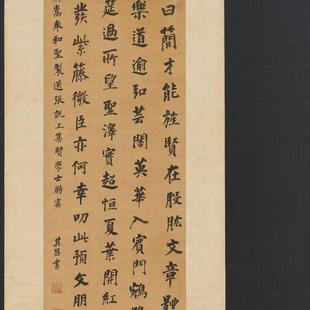 曰簡才能旌賢在股肱文章體
樂道逾弘芸閣英華入賓門鵷
筵過所望聖澤實超恒夏葉開紅
發紫藤微臣亦何幸叨此預文朋
嵩奉和聖製送張說上集賢學士賜宴
其昌書